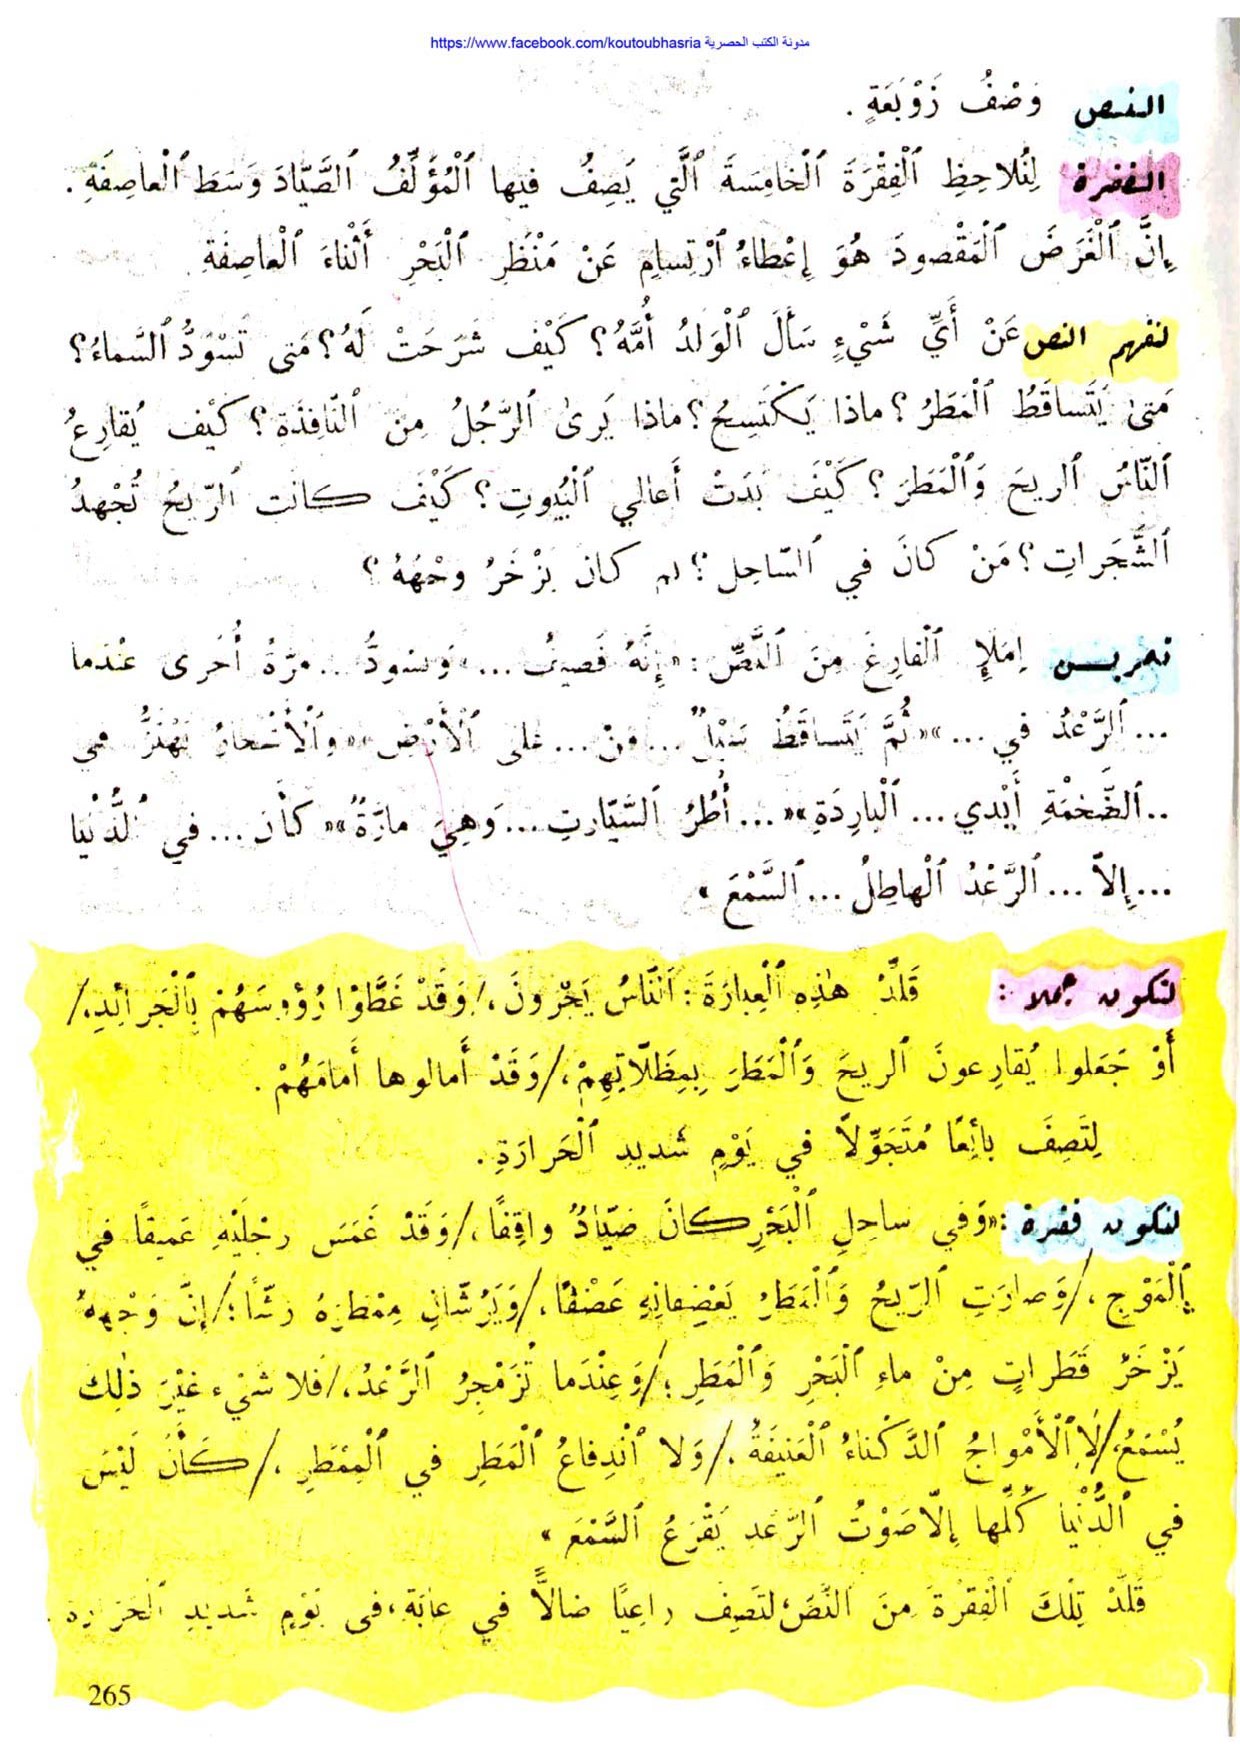 https://www.facebook.com/koutoubhasria مدونة الكتب الحصرية
النص وَصْفُ زَوْبَعَةٍ .
الفقرة لِنُلاحِظِ ٱلْفِقْرَةَ ٱلْخامِسَةَ ٱلَّتي يَصِفُ فيها ٱلْمُؤَلِّفُ ٱلصَّيّادَ وَسَطَ ٱلْعاصِفَةِ .
إِنَّ ٱلْغَرَضَ ٱلْمَقْصودَ هُوَ إِعْطاءُ ٱرْتِسامٍ عَنْ مَنْظَرِ ٱلْبَحْرِ أَثْناءَ ٱلْعاصِفَةِ
لنفهم النص عَنْ أَيِّ شَيْءٍ سَأَلَ ٱلْوَلَدُ أُمَّهُ؟ كَيْفَ شَرَحَتْ لَهُ؟ مَتى تَسْوَدُّ ٱلسَّماءُ؟
مَتىٰ يَتَساقَطُ ٱلْمَطَرُ؟ ماذا يَكْتَسِحُ؟ ماذا يَرىٰ ٱلرَّجُلُ مِنَ ٱلنّافِذَةِ؟ كَيْفَ يُقارِعُ
ٱلنّاسُ ٱلريحَ وَٱلْمَطَرَ؟ كَيْفَ بَدَتْ أَعالي ٱلْبُيوتِ؟ كَيْفَ كانَتِ ٱلرّيحُ تُجْهِدُ
ٱلشَّجَراتِ؟ مَنْ كانَ في ٱلسّاحِلِ؟ لم كانَ يَزْخَرُ وجْهُهُ؟
تمرين اِمْلإِ ٱلْفارِغَ مِنَ ٱلنَّصِّ: «إِنَّهُ قَصيفُ ...» «وَيَسْوَدُّ ... مَرَّةً أُخْرى عِنْدَما
... ٱلرَّعْدُ في ...» «ثُمَّ يَتَساقَطُ سَيْلٌ ... مِنْ ... عَلى ٱلْأَرْضِ» «وَٱلْأَشْجارُ تَهْتَزُّ في
.. ٱلضَّخْمَةِ أَيْدي ... ٱلْبارِدَةِ» «... أُطُرُ ٱلسَّيّاراتِ ... وَهِيَ مارَّةٌ» «كأَن ... في ٱلدُّنْيا
... إِلاّ ... ٱلرَّعْدُ ٱلْهاطِلُ ... ٱلسَّمْعَ»
لنكون جملا : قَلِّدْ هٰذِهِ ٱلْعِبارَةَ: اَلنّاسُ يَجْرونَ،/ وَقَدْ غَطَّوْا رُؤوسَهُمْ بِٱلْجَرائِدِ،/
أَوْ جَعَلوا يُقارِعونَ ٱلريحَ وَٱلْمَطَرَ بِمِظَلّاتِهِمْ،/ وَقَدْ أَمالوها أَمامَهُمْ .
لِتَصِفَ بائِعًا مُتَجَوِّلاً في يَوْمٍ شَديدِ ٱلْحَرارَةِ .
لنكون فقرة : «وَفي ساحِلِ ٱلْبَحْرِ كانَ صَيّادٌ واقِفًا،/ وَقَدْ غَمَسَ رِجْلَيْهِ عَميقًا في
ٱلْمَوْجِ،/ وَصارَتِ ٱلرّيحُ وَٱلْمَطَرُ يَعْصِفانِهِ عَصْفًا،/ وَيَرُشّانِ مِمْطَرَهُ رَشًّا؛/ إِنَّ وَجْهَهُ
يَزْخَرُ قَطَراتٍ مِنْ ماءِ ٱلْبَحْرِ وَٱلْمَطَرِ؛/ وَعِنْدَما تُزَمْجِرُ ٱلرَّعْدُ،/ فَلا شَيْء غَيْرَ ذٰلِكَ
يُسْمَعُ،/ لَا ٱلْأَمْواجُ ٱلدَّكْناءُ ٱلْعَنيفَةُ،/ وَلا ٱنْدِفاعُ ٱلْمَطَرِ في ٱلْمِمْطَرِ،/ كَأَنْ لَيْسَ
في ٱلدُّنْيا كُلِّها إِلّا صَوْتُ ٱلرَّعْدِ يَقْرَعُ ٱلسَّمْعَ»
قَلِّدْ تِلْكَ ٱلْفِقْرَةَ مِنَ ٱلنَّصِّ، لتَصِفَ راعِيًا ضالاًّ في غابَةٍ، في يَوْمٍ شَديدِ ٱلْحَرارَةِ .
265